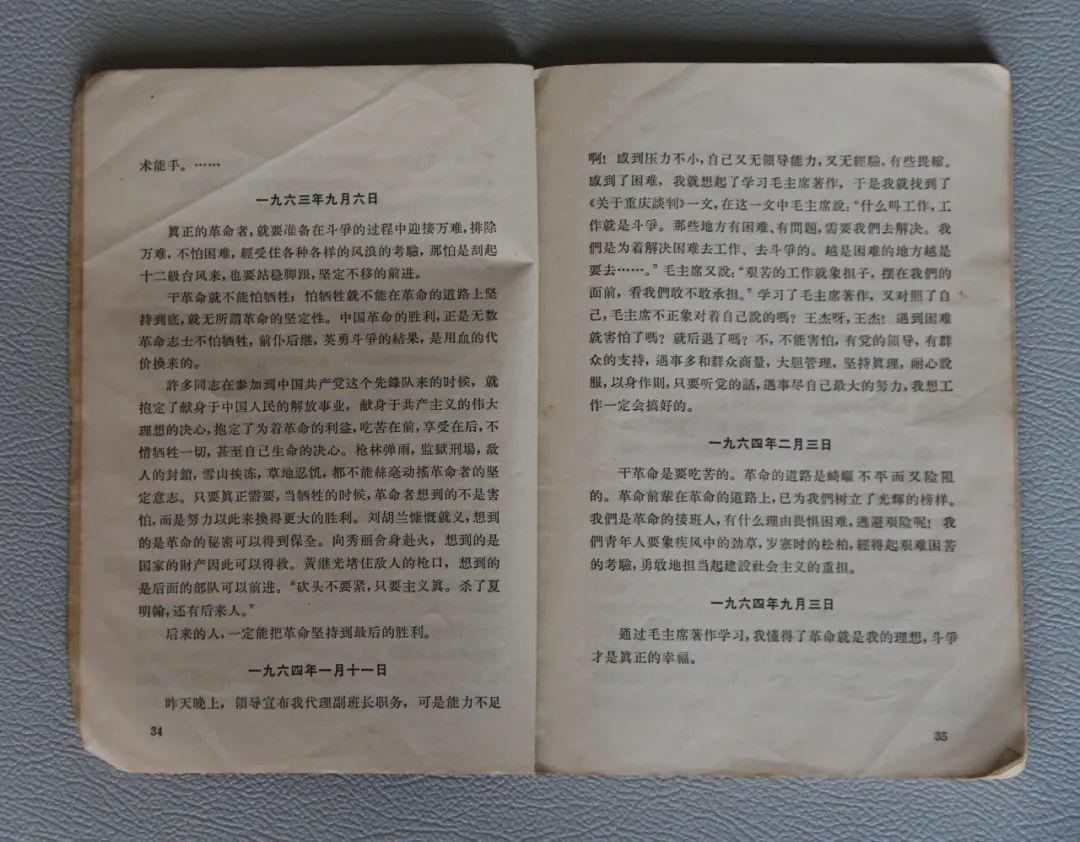 术能手。……
一九六三年九月六日
眞正的革命者，就要准备在斗爭的过程中迎接万难，排除
万难，不怕困难，經受住各种各样的风浪的考驗，那怕是刮起
十二級台风来，也要站稳脚跟，坚定不移的前进。
干革命就不能怕牺牲；怕牺牲就不能在革命的道路上坚
持到底，就无所謂革命的坚定性。中国革命的胜利，正是无数
革命志士不怕牺牲，前仆后继，英勇斗爭的結果，是用血的代
价换来的。
許多同志在参加到中国共产党这个先鋒队来的时候，就
抱定了献身于中国人民的解放事业，献身于共产主义的伟大
理想的决心，抱定了为着革命的利益，吃苦在前，享受在后，不
惜牺牲一切，甚至自己生命的决心。枪林弹雨，监獄刑場，敌
人的封鎖，雪山挨冻，草地忍饥，都不能絲毫动摇革命者的坚
定意志。只要眞正需要，当牺牲的时候，革命者想到的不是害
怕，而是努力以此来换得更大的胜利。刘胡兰慷慨就义，想到
的是革命的秘密可以得到保全。向秀丽舍身赴火，想到的是
国家的财产因此可以得救。黃继光堵住敌人的枪口，想到的
是后面的部队可以前进。“砍头不要紧，只要主义眞。杀了夏
明翰，还有后来人。”
后来的人，一定能把革命坚持到最后的胜利。
一九六四年一月十一日
昨天晚上，领导宣布我代理副班长职务，可是能力不足
34
啊！感到压力不小，自己又无領导能力，又无經驗，有些畏縮。
感到了困难，我就想起了学习毛主席著作，于是我就找到了
《关于重庆談判》一文，在这一文中毛主席說：“什么叫工作，工
作就是斗爭。那些地方有困难、有問題，需要我們去解决。我
們是为着解决困难去工作、去斗爭的。越是困难的地方越是
要去……。”毛主席又說：“艰苦的工作就象担子，摆在我們的
面前，看我們敢不敢承担。”学习了毛主席著作，又对照了自
己，毛主席不正象对着自己說的嗎？王杰呀，王杰！遇到困难
就害怕了嗎？就后退了嗎？不，不能害怕，有党的領导，有群
众的支持，遇事多和群众商量，大胆管理，坚持眞理，耐心說
服，以身作則，只要听党的話，遇事尽自己最大的努力，我想工
作一定会搞好的。
一九六四年二月三日
干革命是要吃苦的。革命的道路是崎嶇不平而又险阻
的。革命前輩在革命的道路上，已为我們树立了光輝的榜样。
我們是革命的接班人，有什么理由畏惧困难，逃避艰险呢！我
們青年人要象疾风中的劲草，岁寒时的松柏，經得起艰难困苦
的考驗，勇敢地担当起建設社会主义的重担。
一九六四年九月三日
通过毛主席著作学习，我懂得了革命就是我的理想，斗爭
才是眞正的幸福。
35